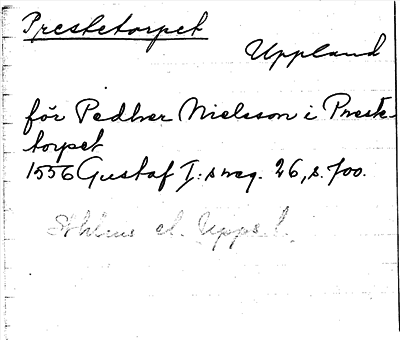 Prestetorpet
Uppland
för Pedher Nielsson i Preste-
torpet
1556 Gustaf I:s reg. 26, s. 700.
el. Upps. l.